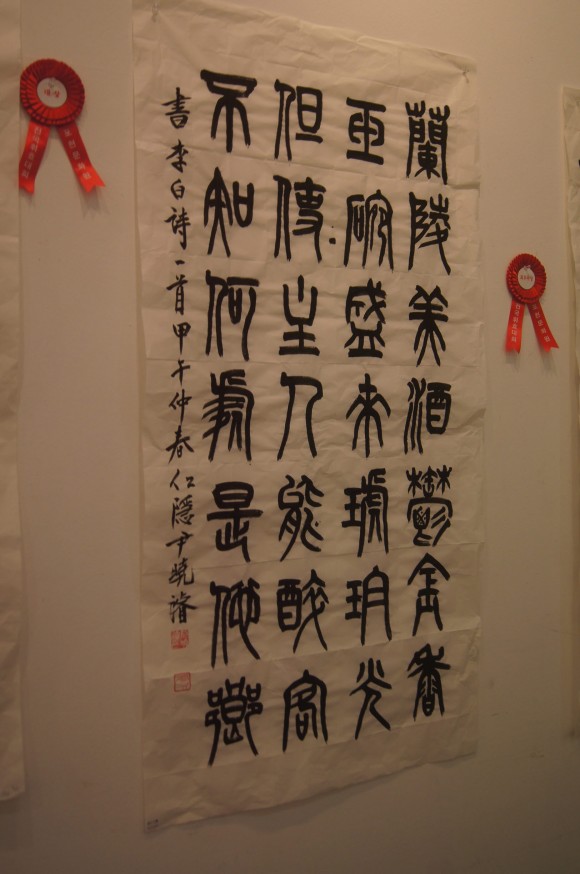 蘭陵美酒鬱金香
玉碗盛來琥珀光
但使主人能醉客
不知何處是他鄉
書李白詩一首甲午仲春仁隱尹曉